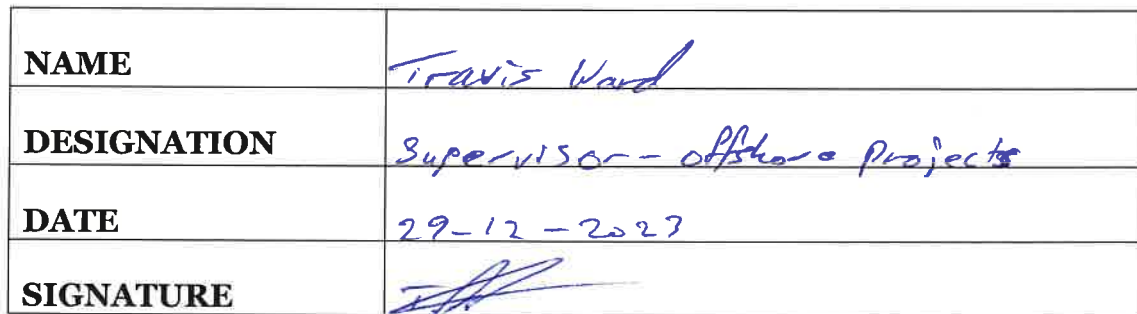 NAME Travis Ward
DESIGNATION Supervisor - offshore Projects
DATE 29-12-2023
SIGNATURE